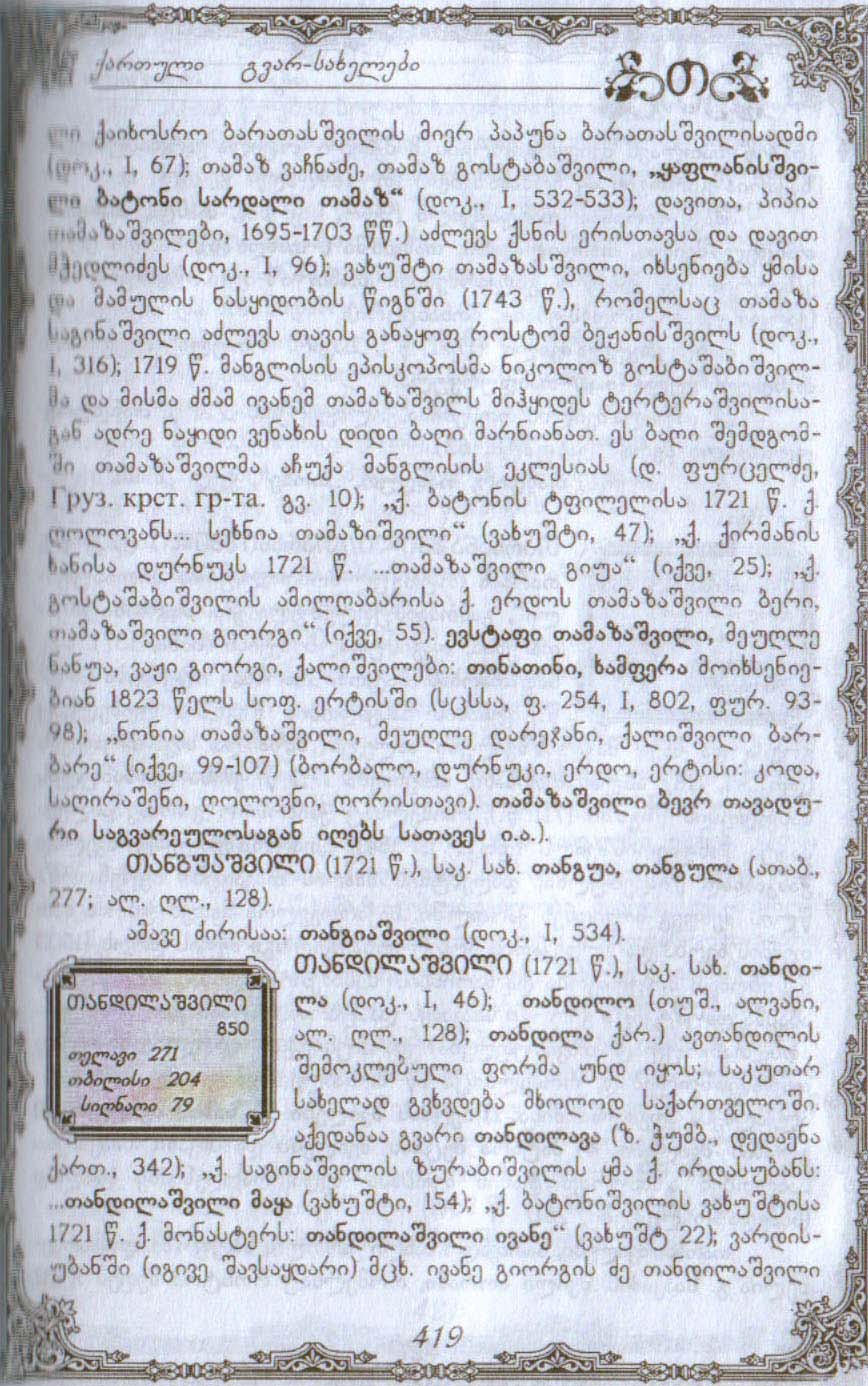 ქართული გვარ-სახელები
თ
ლი ქაიხოსრო ბარათასშვილის მიერ პაპუნა ბარათასშვილისადმი
(დოკ., I, 67); თამაზ ვაჩნაძე, თამაზ გოსტაბაშვილი, „ყაფლანისშვი-
ლი ბატონი სარდალი თამაზ“ (დოკ., I, 532-533); დავითა, პიპია
თამაზაშვილები, 1695-1703 წწ.) აძლევს ქსნის ერისთავსა და დავით
მჭედლიძეს (დოკ., I, 96); ვახუშტი თამაზასშვილი, იხსენიება ყმისა
და მამულის ნასყიდობის წიგნში (1743 წ.), რომელსაც თამაზა
საგინაშვილი აძლევს თავის განაყოფ როსტომ ბეჟანისშვილს (დოკ.,
I, 316); 1719 წ. მანგლისის ეპისკოპოსმა ნიკოლოზ გოსტაშაბიშვილ-
მა და მისმა ძმამ ივანემ თამაზაშვილს მიჰყიდეს ტერტერაშვილისა-
გან ადრე ნაყიდი ვენახის დიდი ბაღი მარნიანათ. ეს ბაღი შემდგომ-
ში თამაზაშვილმა აჩუქა მანგლისის ეკლესიას (დ. ფურცელძე,
Груз. крст. гр-та. გვ. 10); „ქ. ბატონის ტფილელისა 1721 წ. ქ.
ღოლოვანს... სეხნია თამაზიშვილი“ (ვახუშტი, 47); „ქ. ქირმანის
ხანისა დურნუკს 1721 წ. ...თამაზაშვილი გიუა“ (იქვე, 25); „ქ.
გოსტაშაბიშვილის ამილღაბარისა ქ. ერდოს თამაზაშვილი ბერი,
თამაზაშვილი გიორგი“ (იქვე, 55). ევსტაფი თამაზაშვილი, მეუღლე
ნანუა, ვაჟი გიორგი, ქალიშვილები: თინათინი, ხამფერა მოიხსენიე-
ბიან 1823 წელს სოფ. ერტისში (სცსსა, ფ. 254, I, 802, ფურ. 93-
98); „ნონია თამაზაშვილი, მეუღლე დარეჯანი, ქალიშვილი ბარ-
ბარე“ (იქვე, 99-107) (ბორბალო, დურნუკი, ერდო, ერტისი: კოდა,
საღირაშენი, ღოლოვნი, ღორისთავი). თამაზაშვილი ბევრ თავადუ-
რი საგვარეულოსაგან იღებს სათავეს ი.ა.).
თანგუაშვილი (1721 წ.), საკ. სახ. თანგუა, თანგულა (ათაბ.,
277; ალ. ღლ., 128).
ამავე ძირისაა: თანგიაშვილი (დოკ., I, 534).
თანდილაშვილი
850
თელავი 271
თბილისი 204
სიღნაღი 79
თანდილაშვილი (1721 წ.), საკ. სახ. თანდი-
ლა (დოკ., I, 46); თანდილო (თუშ., ალვანი,
ალ. ღლ., 128); თანდილა ქარ.) ავთანდილის
შემოკლებული ფორმა უნდ იყოს; საკუთარ
სახელად გვხვდება მხოლოდ საქართველოში.
აქედანაა გვარი თანდილავა (ზ. ჭუმბ., დედაენა
ქართ., 342); „ქ. საგინაშვილის ზურაბიშვილის ყმა ქ. ირდასუბანს:
...თანდილაშვილი მაყა (ვახუშტი, 154); „ქ. ბატონიშვილის ვახუშტისა
1721 წ. ქ. მონასტერს: თანდილაშვილი ივანე“ (ვახუშტ 22); ვარდის-
უბანში (იგივე შავსაყდარი) მცხ. ივანე გიორგის ძე თანდილაშვილი
419